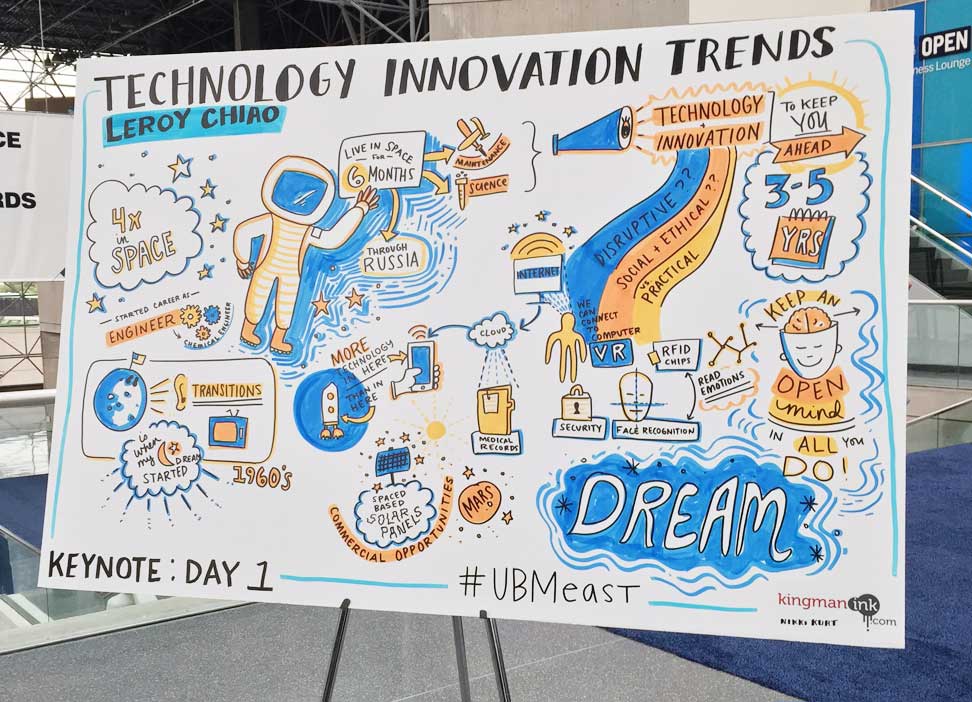 TECHNOLOGY INNOVATION TRENDS
LEROY CHIAO
4x
in
SPACE
LIVE IN SPACE
FOR
6 MONTHS
MAINTENANCE
SCIENCE
THROUGH
RUSSIA
STARTED CAREER AS
ENGINEER
CHEMICAL ENGINEER
TRANSITIONS
1960's
IS
WHEN
MY DREAM
STARTED
MORE
TECHNOLOGY
IN HERE
THAN IN
HERE
SPACED
BASED
SOLAR
PANELS
COMMERCIAL OPPORTUNITIES
MARS
TECHNOLOGY
+
INNOVATION
TO KEEP
YOU
AHEAD
3-5
YRS
DISRUPTIVE ??
SOCIAL + ETHICAL ??
VS
PRACTICAL
INTERNET
CLOUD
MEDICAL
RECORDS
WE
CAN
CONNECT
TO
COMPUTER
VR
RFID
CHIPS
READ
EMOTIONS
SECURITY
FACE RECOGNITION
KEEP AN
OPEN
mind
IN ALL YOU
DO!
DREAM
KEYNOTE: DAY 1
#UBMeast
kingmanink.com
NIKKI KURT
CE
RDS
OPEN
ness Lounge